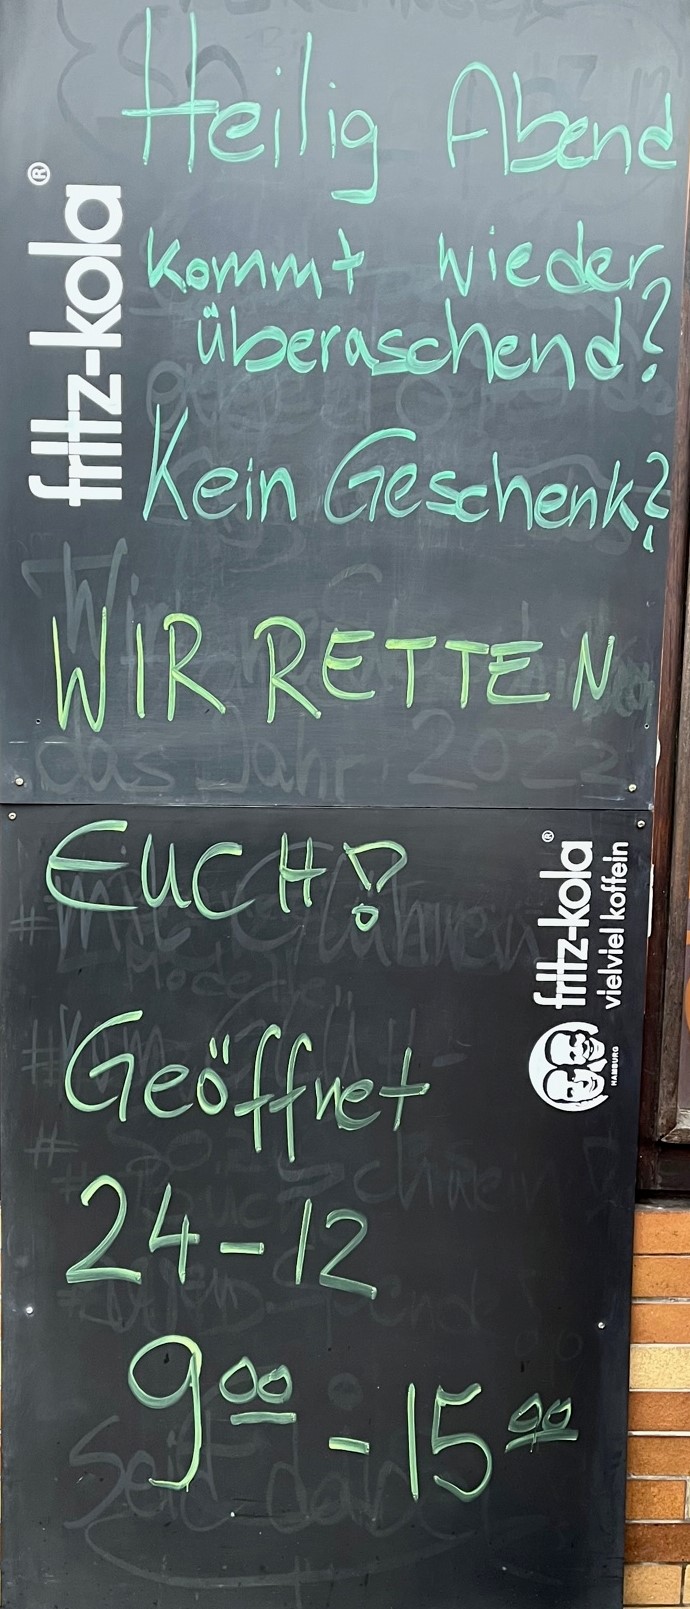 Heilig Abend
kommt wieder
überaschend?
Kein Geschenk?
WIR RETTEN
EUCH!
Geöffnet
24-12
9⁰⁰ - 15⁰⁰
fritz-kola®
fritz-kola®
vielviel koffein
HAMBURG
das Jahr 2022